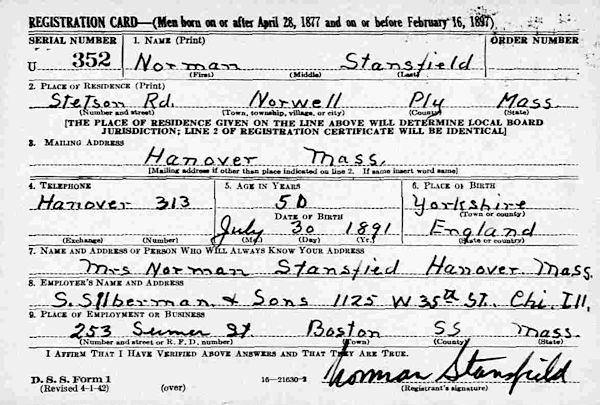 REGISTRATION CARD—(Men born on or after April 28, 1877 and on or before February 16, 1897)
SERIAL NUMBER 1. NAME (Print) ORDER NUMBER
U 352 Norman Stansfield
(First) (Middle) (Last)
2. PLACE OF RESIDENCE (Print)
Stetson Rd. Norwell Ply Mass
(Number and street) (Town, township, village, or city) (County) (State)
[THE PLACE OF RESIDENCE GIVEN ON THE LINE ABOVE WILL DETERMINE LOCAL BOARD
JURISDICTION; LINE 2 OF REGISTRATION CERTIFICATE WILL BE IDENTICAL]
3. MAILING ADDRESS
Hanover Mass.
[Mailing address if other than place indicated on line 2. If same insert word same]
4. TELEPHONE 5. AGE IN YEARS 6. PLACE OF BIRTH
Hanover 313 50 Yorkshire
(Town or county)
DATE OF BIRTH
July 30 1891 England
(Exchange) (Number) (Mo.) (Day) (Yr.) (State or country)
7. NAME AND ADDRESS OF PERSON WHO WILL ALWAYS KNOW YOUR ADDRESS
Mrs Norman Stansfied Hanover Mass.
8. EMPLOYER'S NAME AND ADDRESS
S. Silberman & Sons 1125 W 35th St. Chi. Ill.
9. PLACE OF EMPLOYMENT OR BUSINESS
253 Sumer St Boston SS Mass.
(Number and street or R. F. D. number) (Town) (County) (State)
I AFFIRM THAT I HAVE VERIFIED ABOVE ANSWERS AND THAT THEY ARE TRUE.
D. S. S. Form 1
(Revised 4-1-42) (over) 16—21630-2 Norman Stansfield
(Registrant's signature)